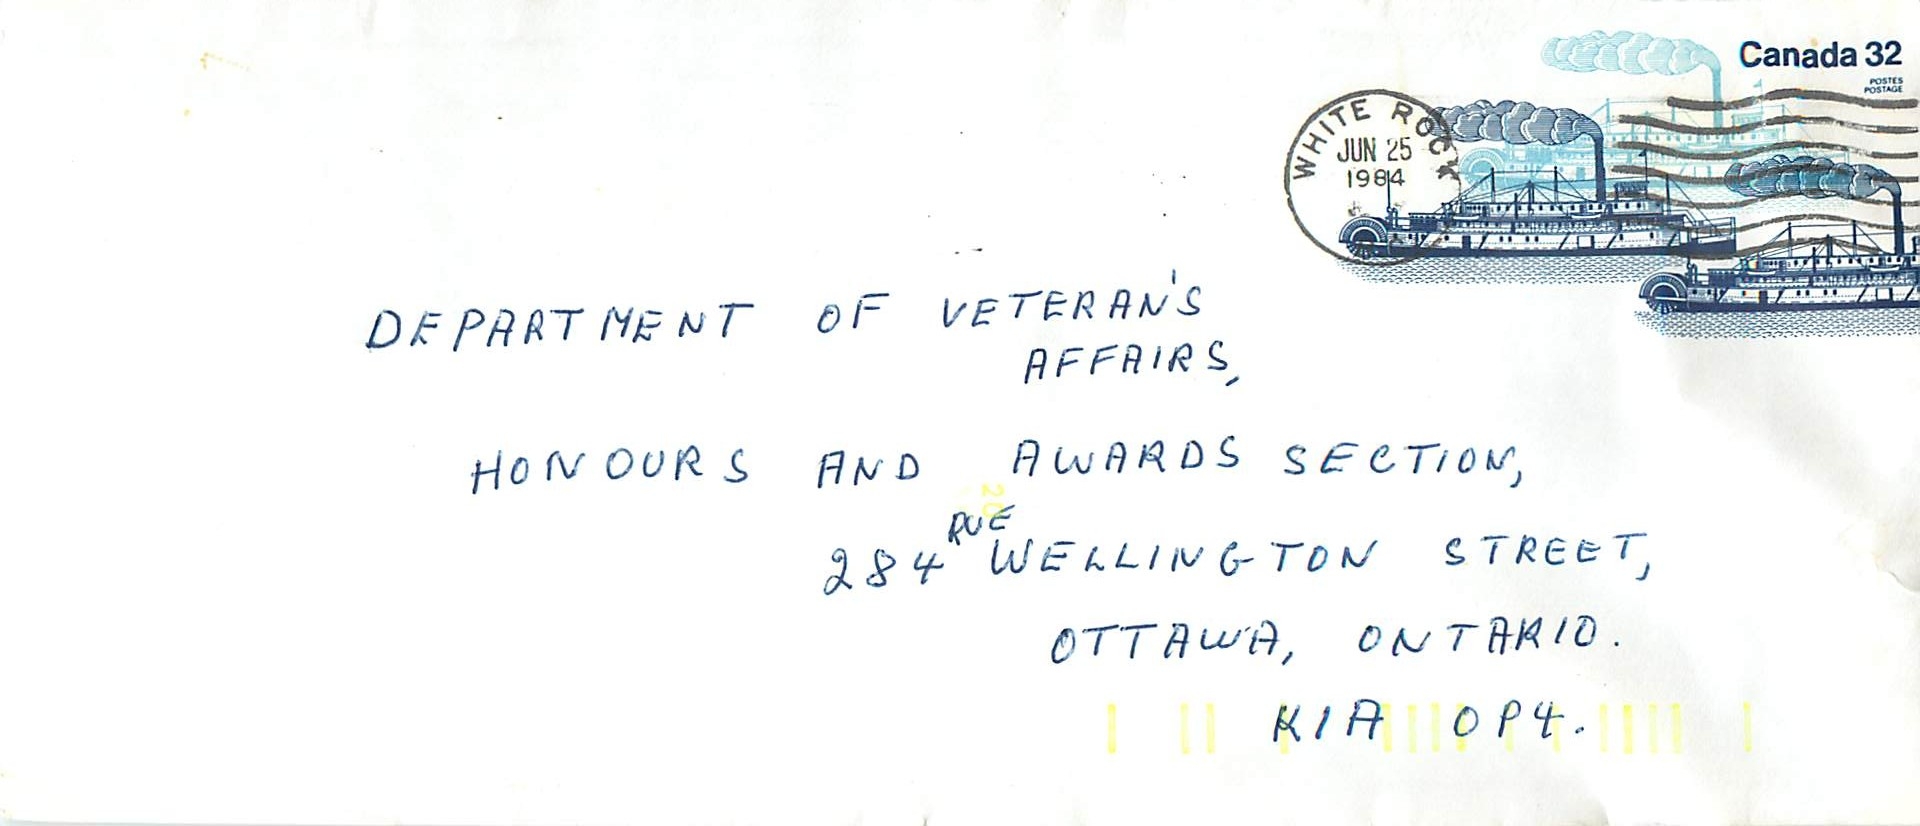 Canada 32
POSTES
POSTAGE
WHITE ROCK
JUN 25
1984
DEPARTMENT OF VETERAN'S
AFFAIRS,
HONOURS AND AWARDS SECTION,
20
RUE
284 WELLINGTON STREET,
OTTAWA, ONTARIO.
K1A 0P4.